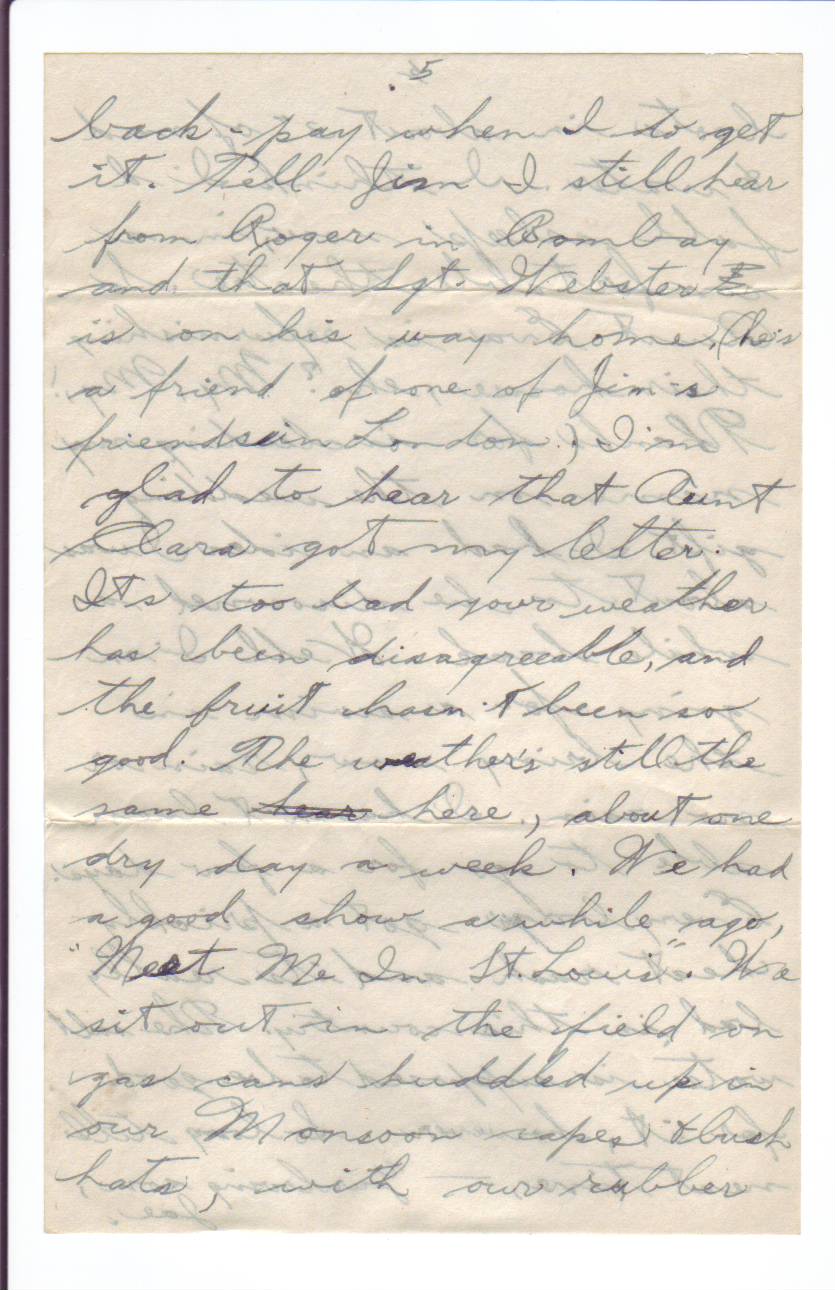 5
back-pay when I do get
it. Tell Jim I still hear
from Roger in Bombay
and that Sgt. Webster
is on his way home, (he's
a friend of one of Jim's
friends in London.) I'm
glad to hear that Aunt
Clara got my letter.
It's too bad your weather
has been disagreeable, and
the fruit hasn't been so
good. The weather's still the
same hear here, about one
dry day a week. We had
a good show a while ago,
"Meet Me In St. Louis". We
sit out in the field on
gas cans huddled up in
our Monsoon capes & bush
hats, with our rubber